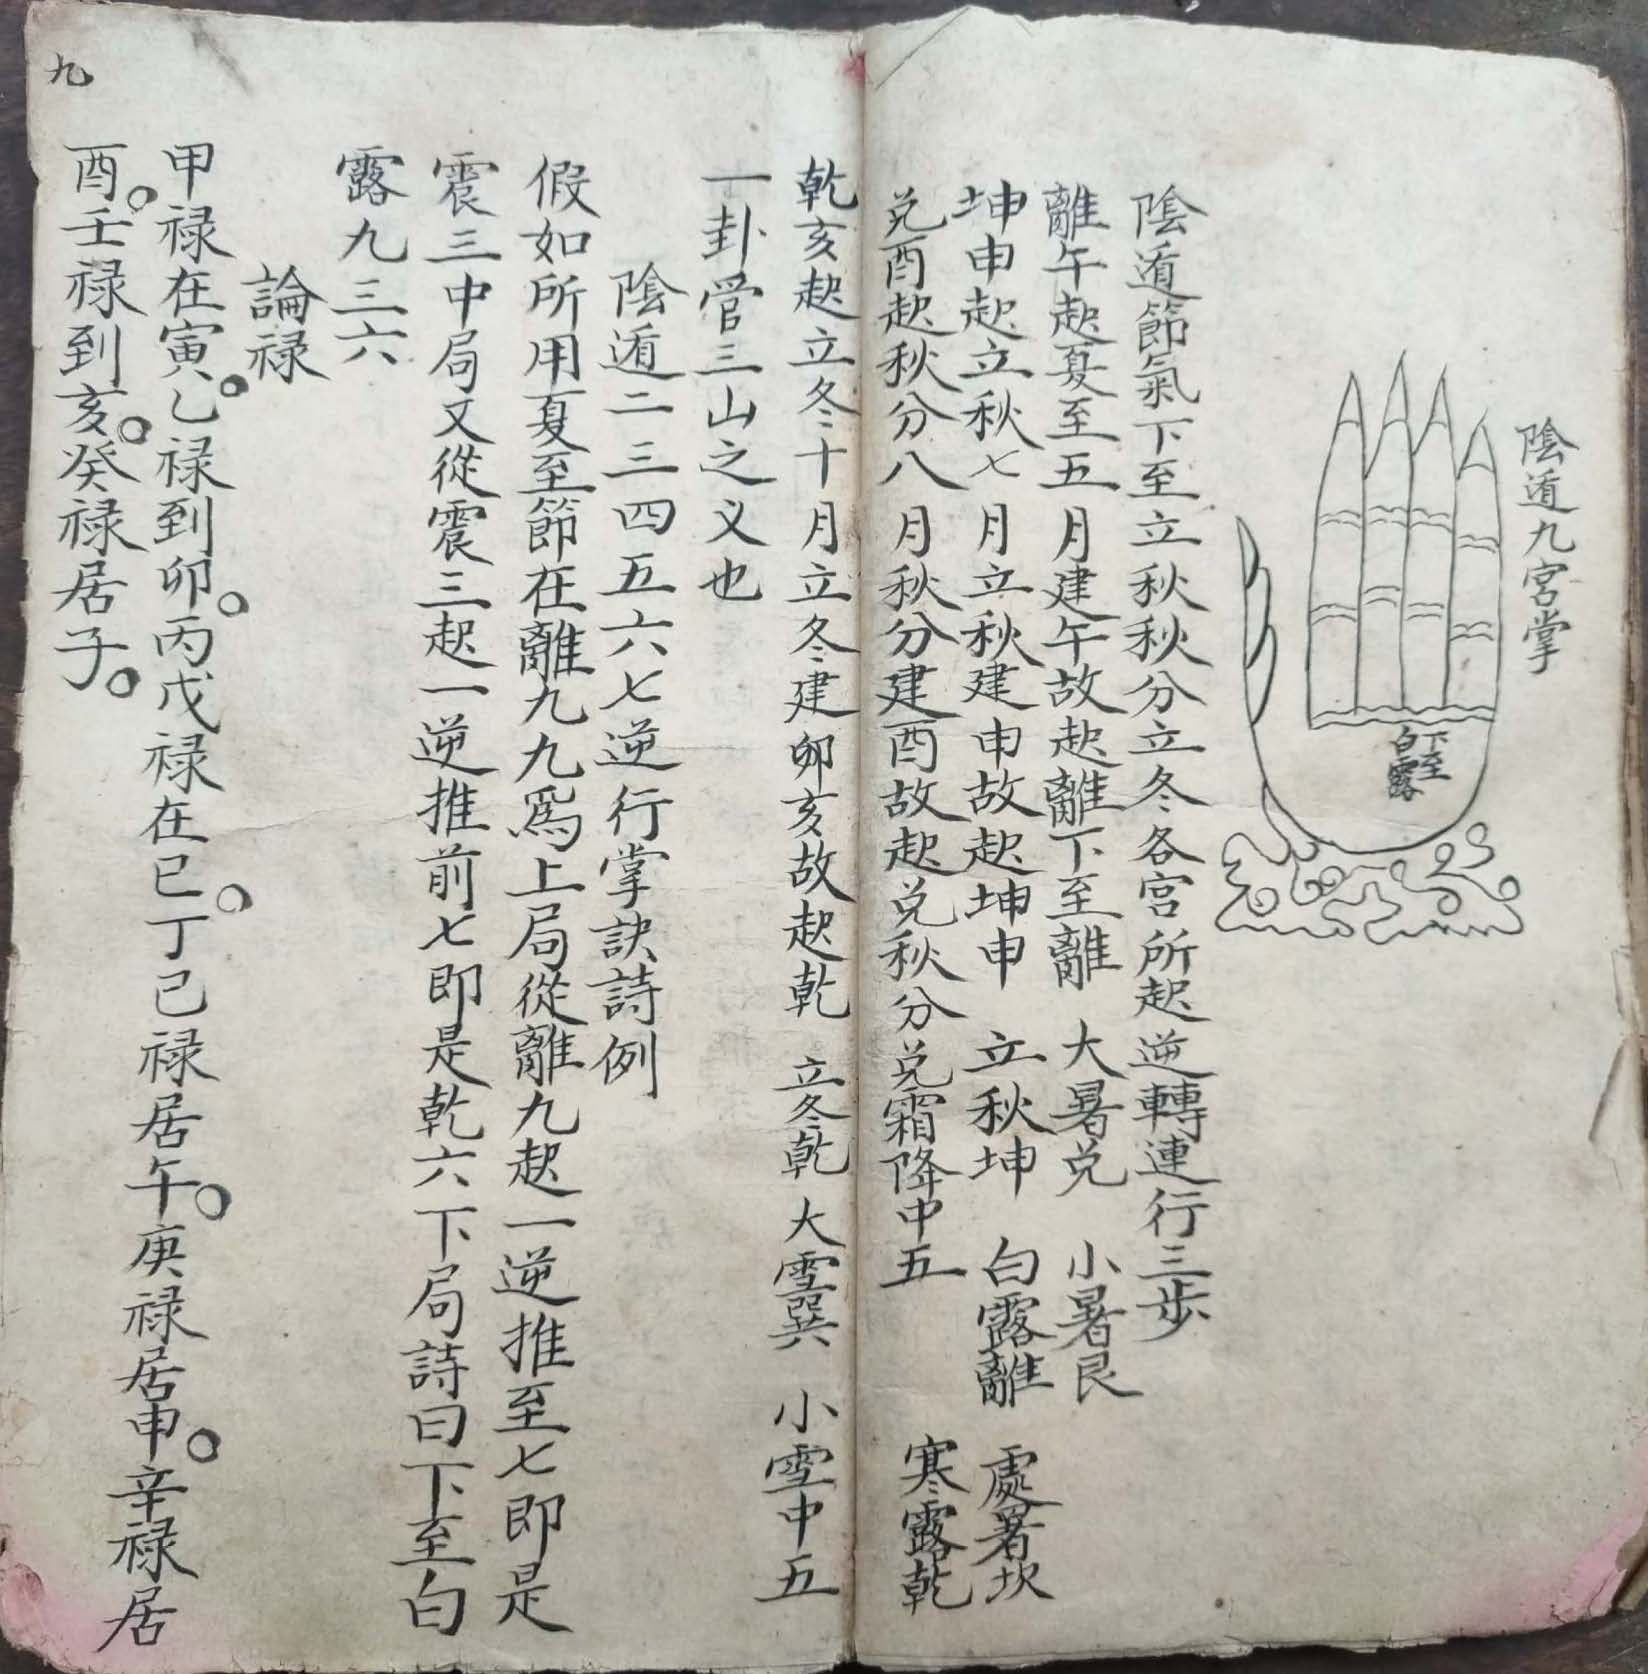 陰遁九宮掌
下至
白露
陰遁節氣下至立秋秋分立冬各宮所起逆轉連行三步
離午起夏至五月建午故起離下至離　大暑兌　小暑艮
坤申起立秋七月立秋建申故起坤申　立秋坤　白露離　處暑坎
兌酉起秋分八月秋分建酉故起兌秋分兌霜降中五　寒露乾
乾亥起立冬十月立冬建卯亥故起乾　立冬乾　大雪巽　小雪中五
一卦管三山之义也
陰遁二三四五六七逆行掌訣詩例
假如所用夏至節在離九九爲上局從離九起一逆推至七即是
震三中局又從震三起一逆推前七即是乾六下局詩曰下至白
露九三六
論禄
甲禄在寅。乙禄到卯。丙戊禄在巳。丁己禄居午。庚禄居申。辛禄居
酉。壬禄到亥。癸禄居子。
九